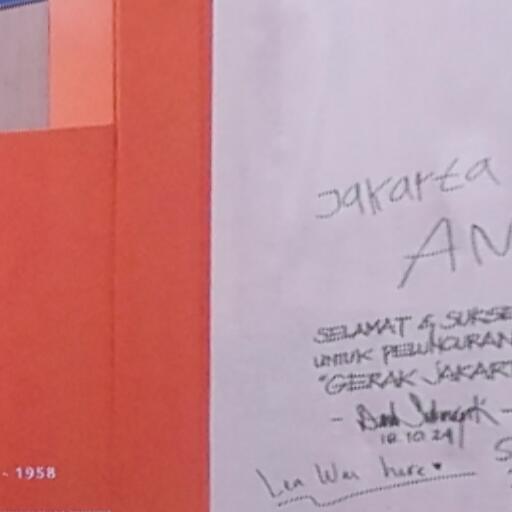 - 1958
Jakarta
AN
SELAMAT & SUKSE
UNTUK PELUNCURAN
"GERAK JAKART
18.10.24
Lea Was here